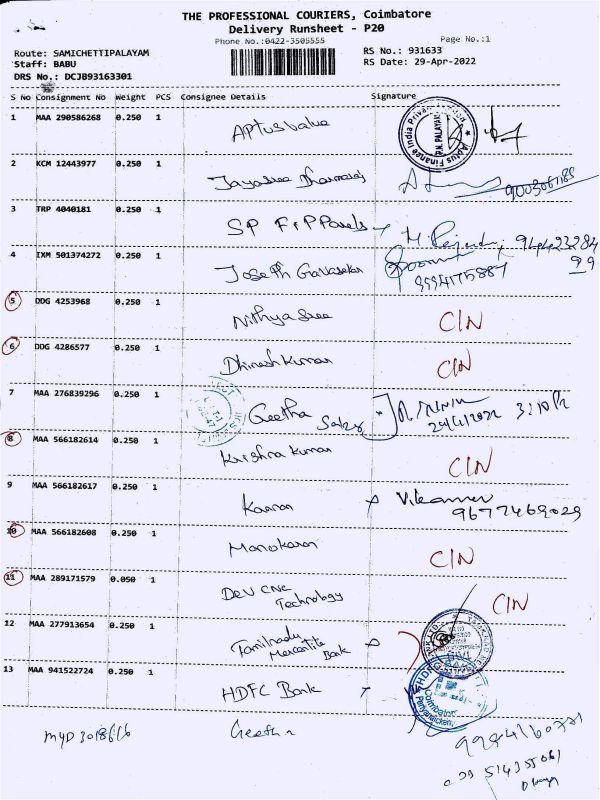 THE PROFESSIONAL COURIERS, Coimbatore
Delivery Runsheet - P20
Phone No.:0422-3505555 Page No.:1
Route: SAMICHETTIPALAYAM RS No.: 931633
Staff: BABU RS Date: 29-Apr-2022
DRS No.: DCJB93163301
S No Consignment No Weight PCS Consignee Details Signature
1 MAA 290586268 0.250 1 Aptus value
Aptus Finance India Private P.N. PALAYAM
2 KCM 12443977 0.250 1 Jayasree
3 TRP 4040181 0.250 1 SP F&P Panels
4 IXM 501374272 0.250 1 Joseph Gunasekar
9994175887
5 DDG 4253968 0.250 1 Nithya Sree C/N
6 DDG 4286577 0.250 1 Dhinesh Kumar C/N
7 MAA 276839296 0.250 1 Geetha 3:10
8 MAA 566182614 0.250 1 Krishna Kumar C/N
9 MAA 566182617 0.250 1 Kannan
9677469029
10 MAA 566182608 0.250 1 Manokaran C/N
11 MAA 289171579 0.050 1 Dev CNC
Technology C/N
12 MAA 277913654 0.250 1 Tamilnadu
Mercantile
Bank
13 MAA 941522724 0.250 1 HDFC Bank
HDFC BANK Coimbatore
Geetha